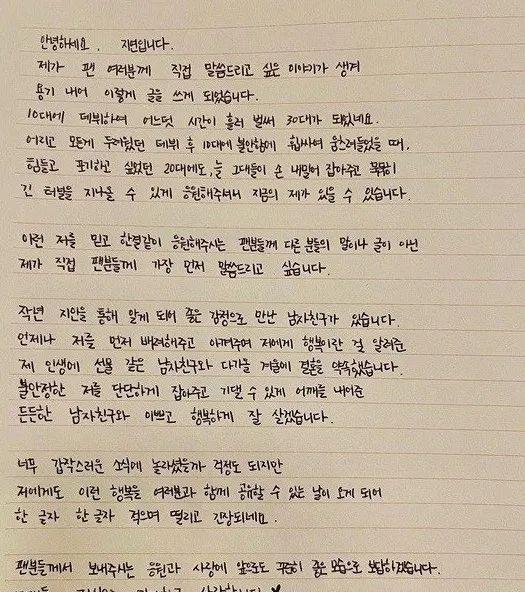 안녕하세요. 지연입니다.
제가 팬 여러분께 직접 말씀드리고 싶은 이야기가 생겨
용기 내어 이렇게 글을 쓰게 되었습니다.
10대에 데뷔하여 어느덧 시간이 흘러 벌써 30대가 되었네요.
어리고 모든게 두려웠던 데뷔 후 10대에 불안함에 휩싸여 움츠러들었을 때,
힘들고 포기하고 싶었던 20대에도, 늘 그대들이 손 내밀어 잡아주고 묵묵히
긴 터널을 지나올 수 있게 응원해주셔서 지금의 제가 있을 수 있습니다.
이런 저를 믿고 한결같이 응원해주시는 팬분들께 다른 분들의 말이나 글이 아닌
제가 직접 팬분들께 가장 먼저 말씀드리고 싶습니다.
작년 지인을 통해 알게 되어 좋은 감정으로 만난 남자친구가 있습니다.
언제나 저를 먼저 배려해주고 아껴주며 저에게 행복이란 걸 알려준
제 인생에 선물 같은 남자친구와 다가올 겨울에 결혼을 약속했습니다.
불안정한 저를 단단하게 잡아주고 기댈 수 있게 어깨를 내어준
든든한 남자친구와 이쁘고 행복하게 잘 살겠습니다.
너무 갑작스러운 소식에 놀라셨을까 걱정도 되지만
저에게도 이런 행복을 여러분과 함께 공유할 수 있는 날이 오게 되어
한 글자 한 글자 적으며 떨리고 긴장되네요.
팬분들께서 보내주시는 응원과 사랑에 앞으로도 꾸준히 좋은 모습으로 보답하겠습니다.